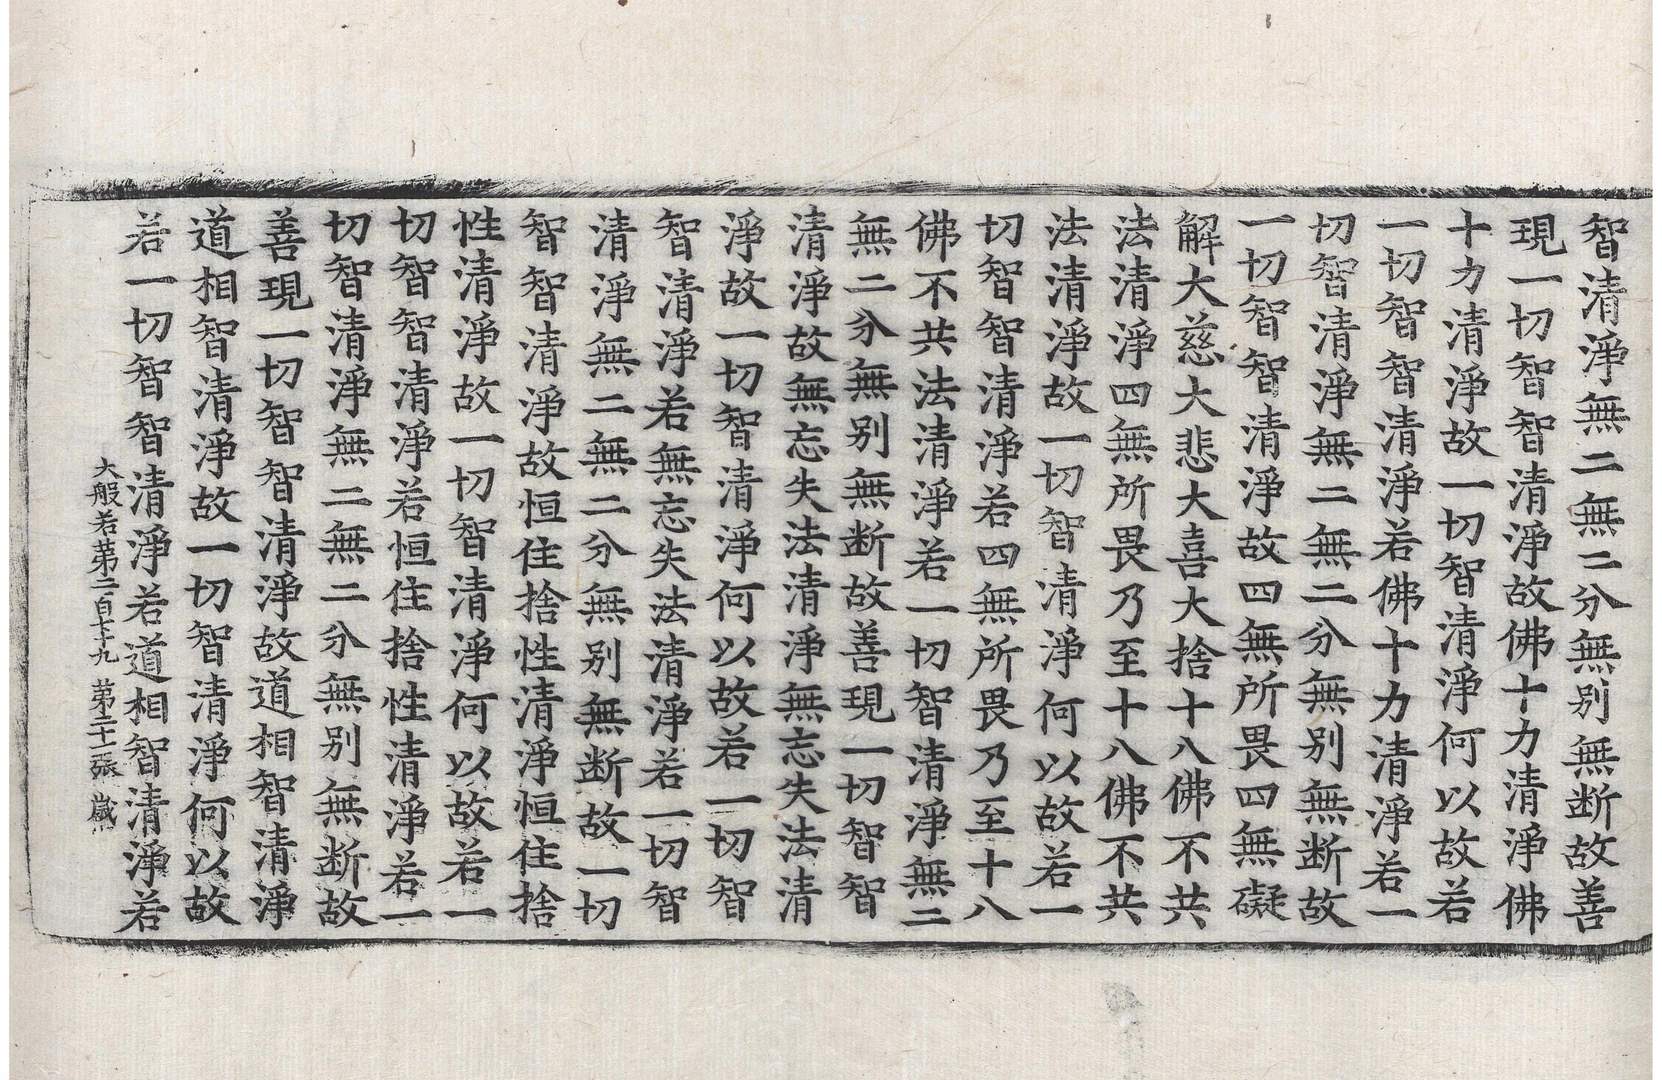 智清淨無二無二分無別無断故善
現一切智智清淨故佛十力清淨佛
十力清淨故一切智清淨何以故若
一切智智清淨若佛十力清淨若一
切智清淨無二無二分無別無断故
一切智智清淨故四無所畏四無礙
解大慈大悲大喜大捨十八佛不共
法清淨四無所畏乃至十八佛不共
法清淨故一切智清淨何以故若一
切智智清淨若四無所畏乃至十八
佛不共法清淨若一切智清淨無二
無二分無別無断故善現一切智智
清淨故無忘失法清淨無忘失法清
淨故一切智清淨何以故若一切智
智清淨若無忘失法清淨若一切智
清淨無二無二分無別無断故一切
智智清淨故恒住捨性清淨恒住捨
性清淨故一切智清淨何以故若一
切智智清淨若恒住捨性清淨若一
切智清淨無二無二分無別無断故
善現一切智智清淨故道相智清淨
道相智清淨故一切智清淨何以故
若一切智智清淨若道相智清淨若
大般若第二百七十九 第二十一張